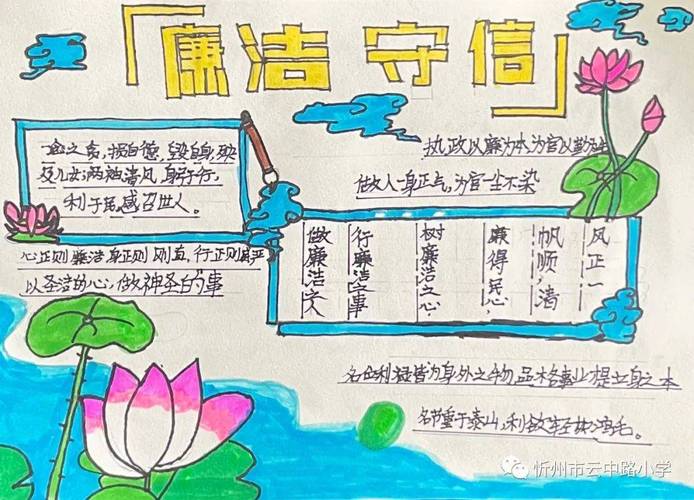 「廉洁 守信」
一念之贪,损自德,毁自身,殃
及儿女;两袖清风,身于行,
利于民,感召世人。
执政以廉为本为官以勤
做人一身正气,为官一尘不染
风正一
帆顺,清
廉得民心,
树廉洁之心·
行廉洁之事
做廉洁之人
心正则廉洁身正则刚直,行正则严
以圣洁的心,做神圣的事
名位利禄皆为身外之物,品格事业是立身之本
名节重于泰山,利欲轻如鸿毛。
忻州市云中路小学